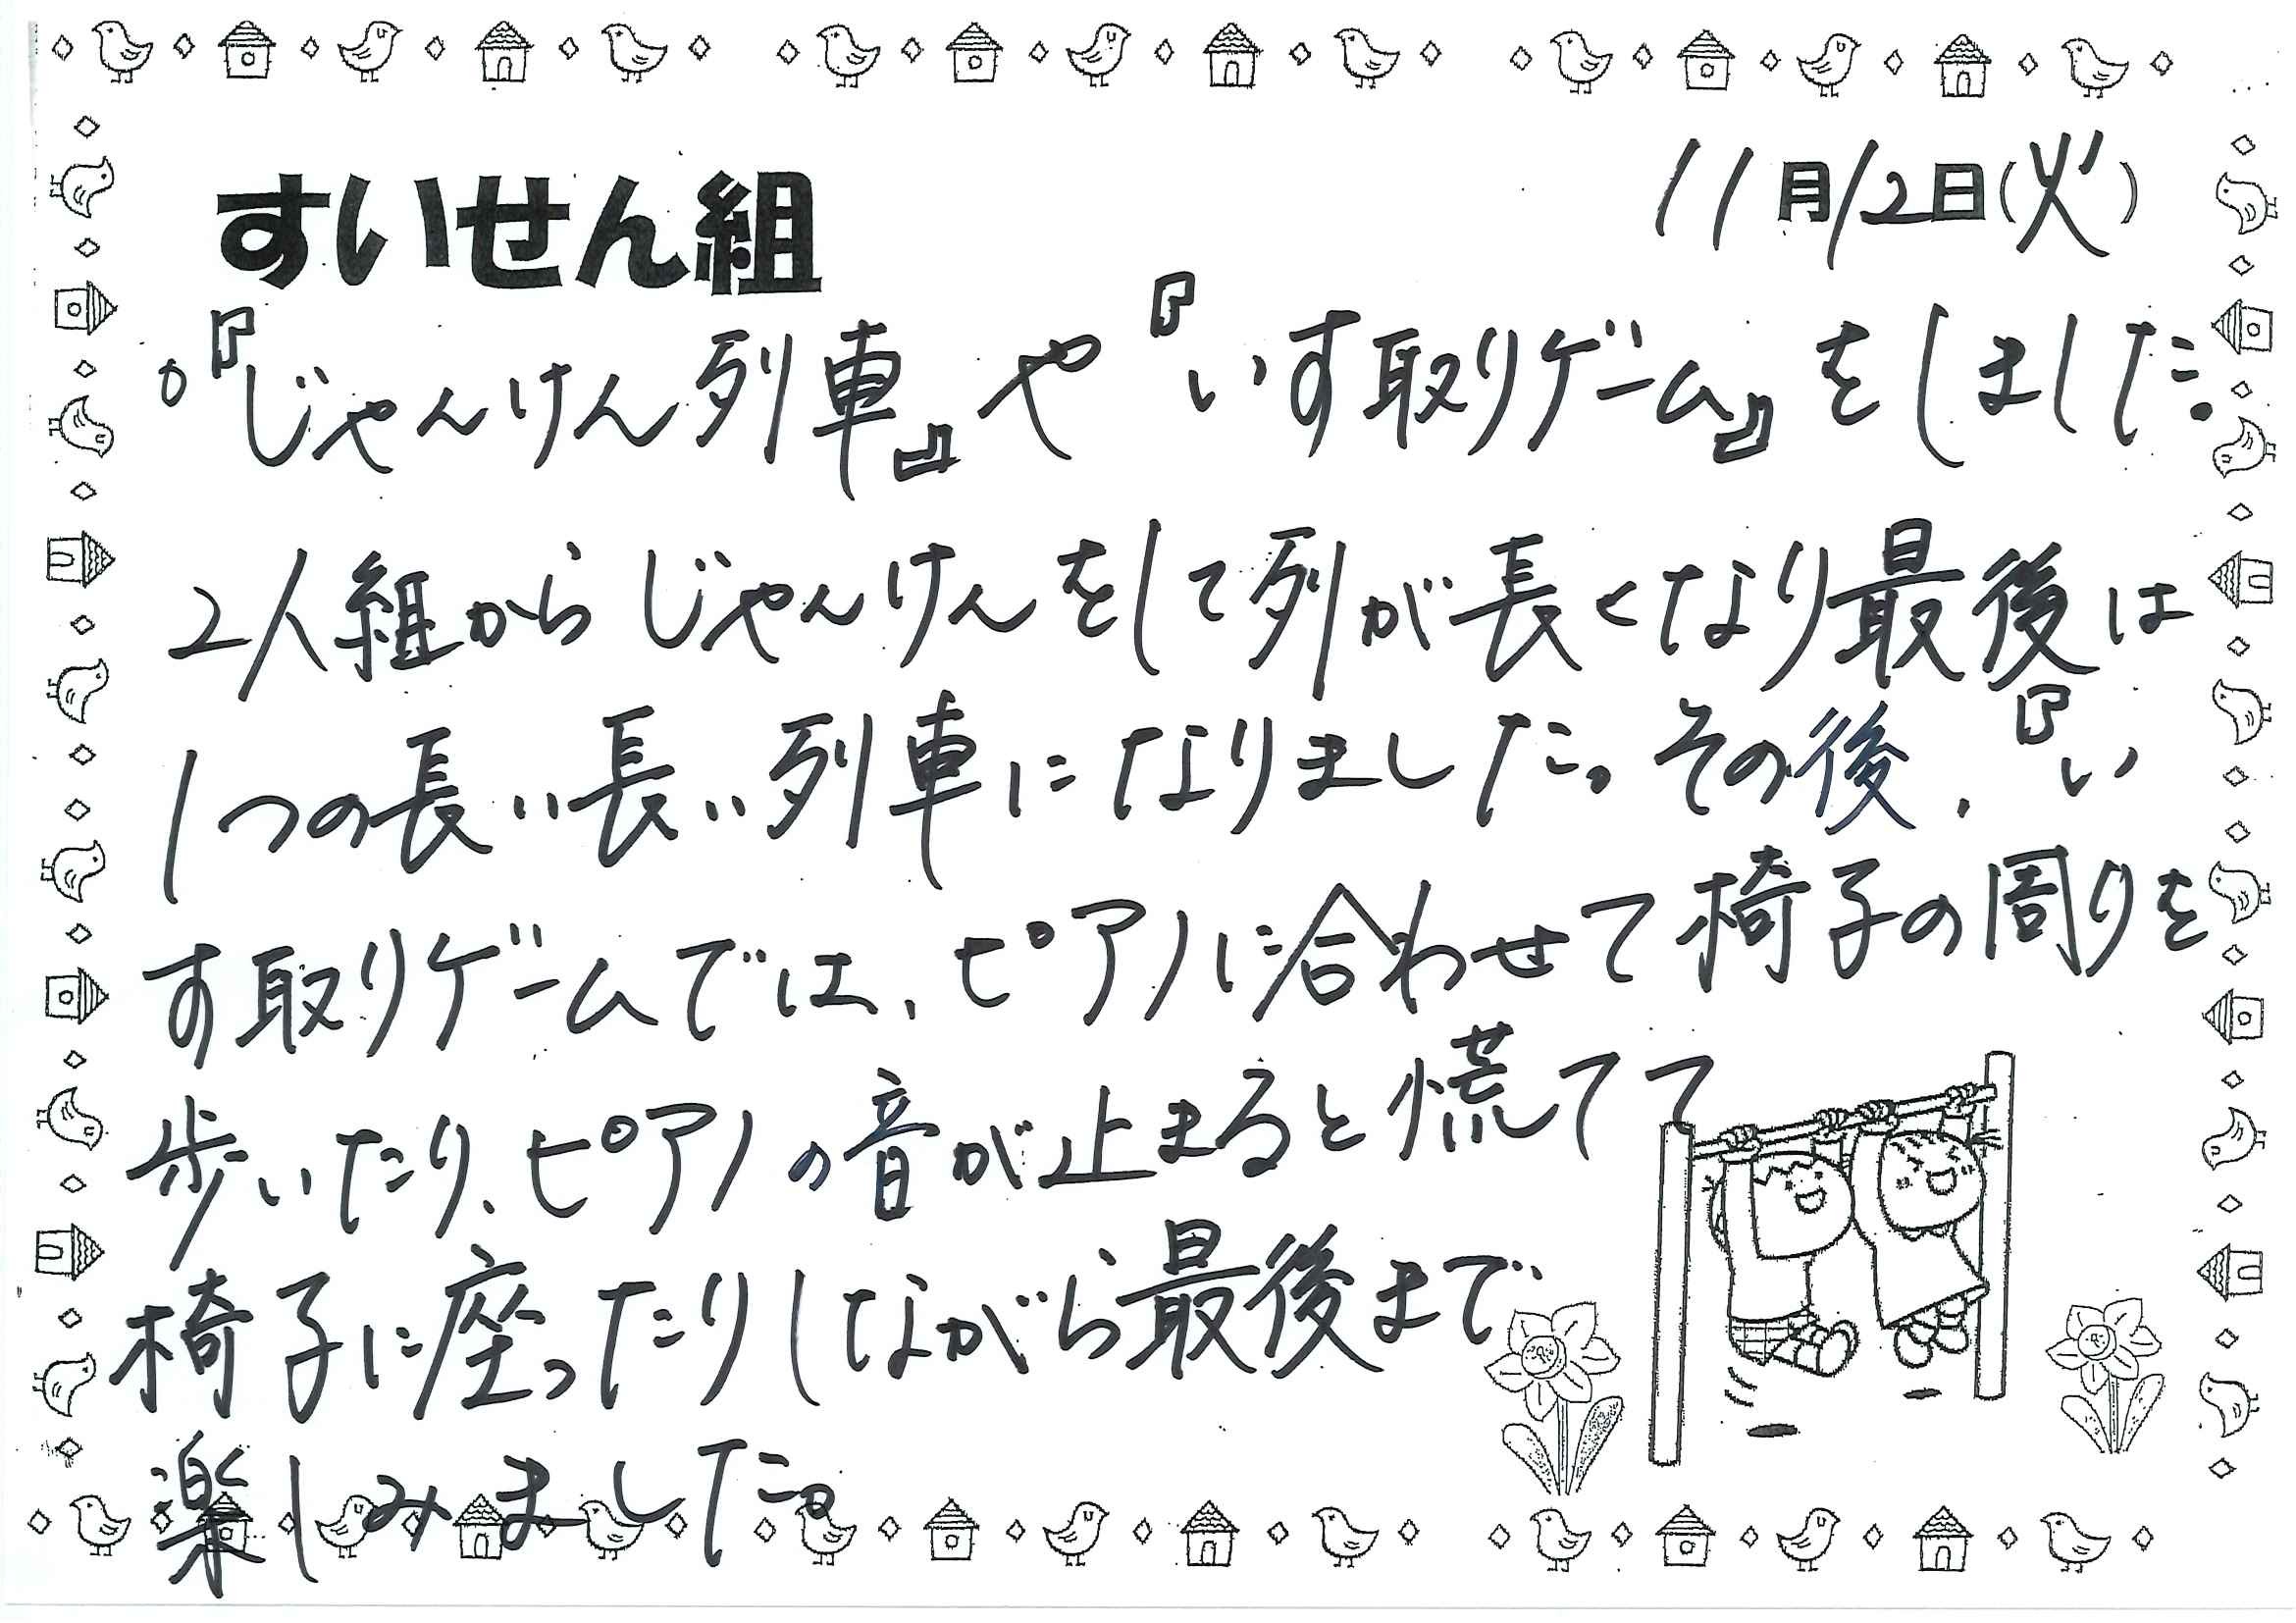 すいせん組
11月12日(火)
。『じゃんけん列車』や『いす取りゲーム』をしました。
2人組からじゃんけんをして列が長くなり最後は
1つの長い長い列車になりました。その後、『い
す取りゲームでは、ピアノに合わせて椅子の周りを
歩いたり、ピアノの音が止まると慌てて
椅子に座ったりしながら最後まで
楽しみました。